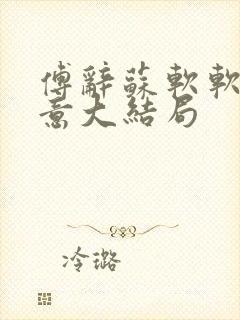 傅辭蘇軟軟
意大結局
冷璐